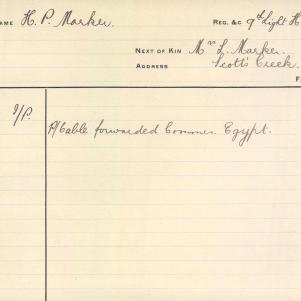 NAME H. P. Marker. REG. &C 9th Light H
NEXT OF KIN Mr L. Marker.
ADDRESS Scott's Creek.
F
I/P. P/Cable forwarded Commun. Egypt.